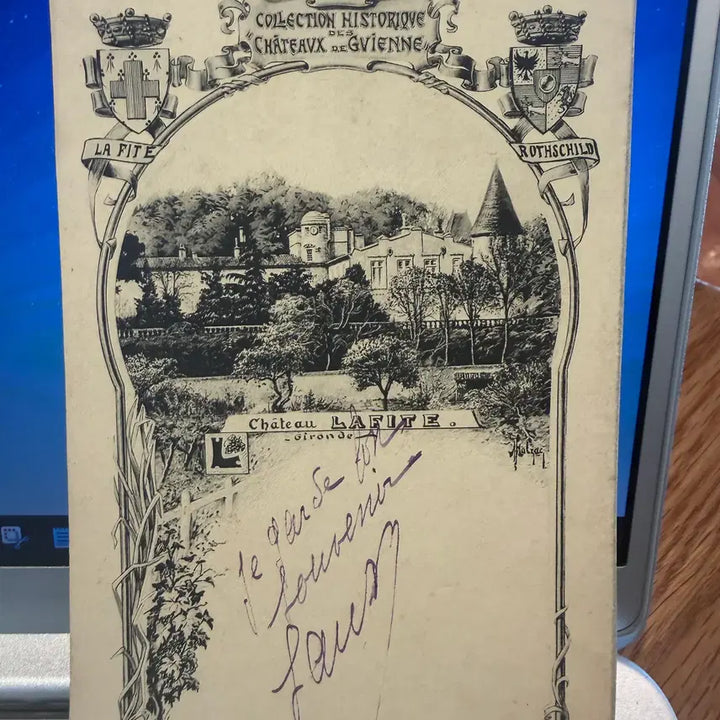 COLLECTION HISTORIQUE
DES
CHÂTEAUX DE GUIENNE
LA FITE
ROTHSCHILD
Château LAFITE.
-Gironde-
Je garde ton
souvenir